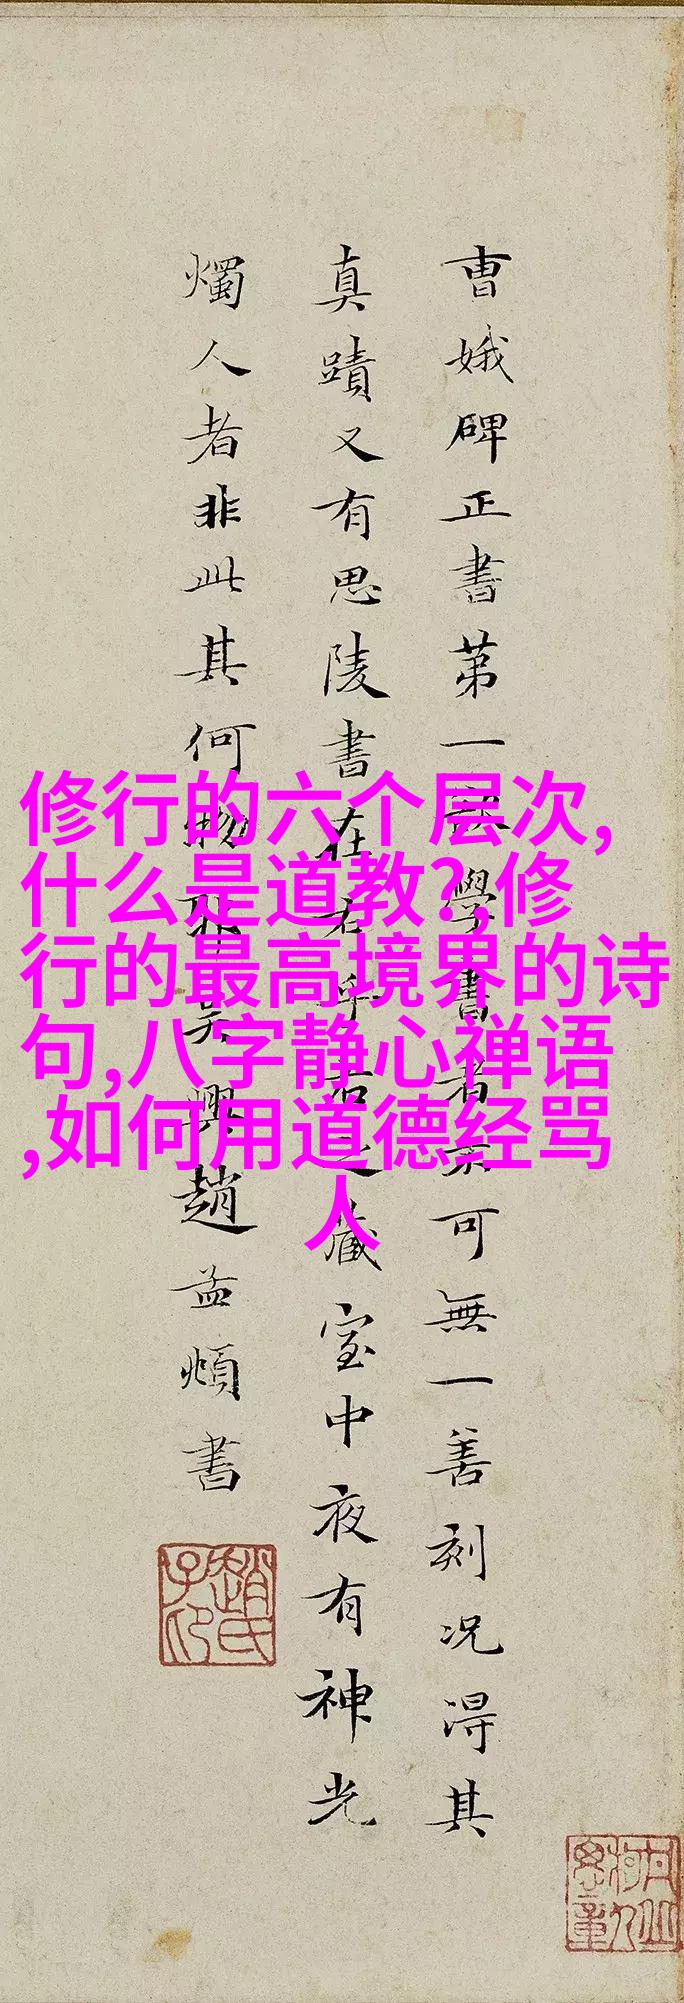 曹娥碑正書第一學書者不可無一善刻況淂其
真蹟又有思陵書在右乎右之藏室中夜有神光
燭人者非此其何物耶吳興趙孟頫書
修行的六个层次,
什么是道教?,修
行的最高境界的诗
句,八字静心禅语
,如何用道德经骂
人